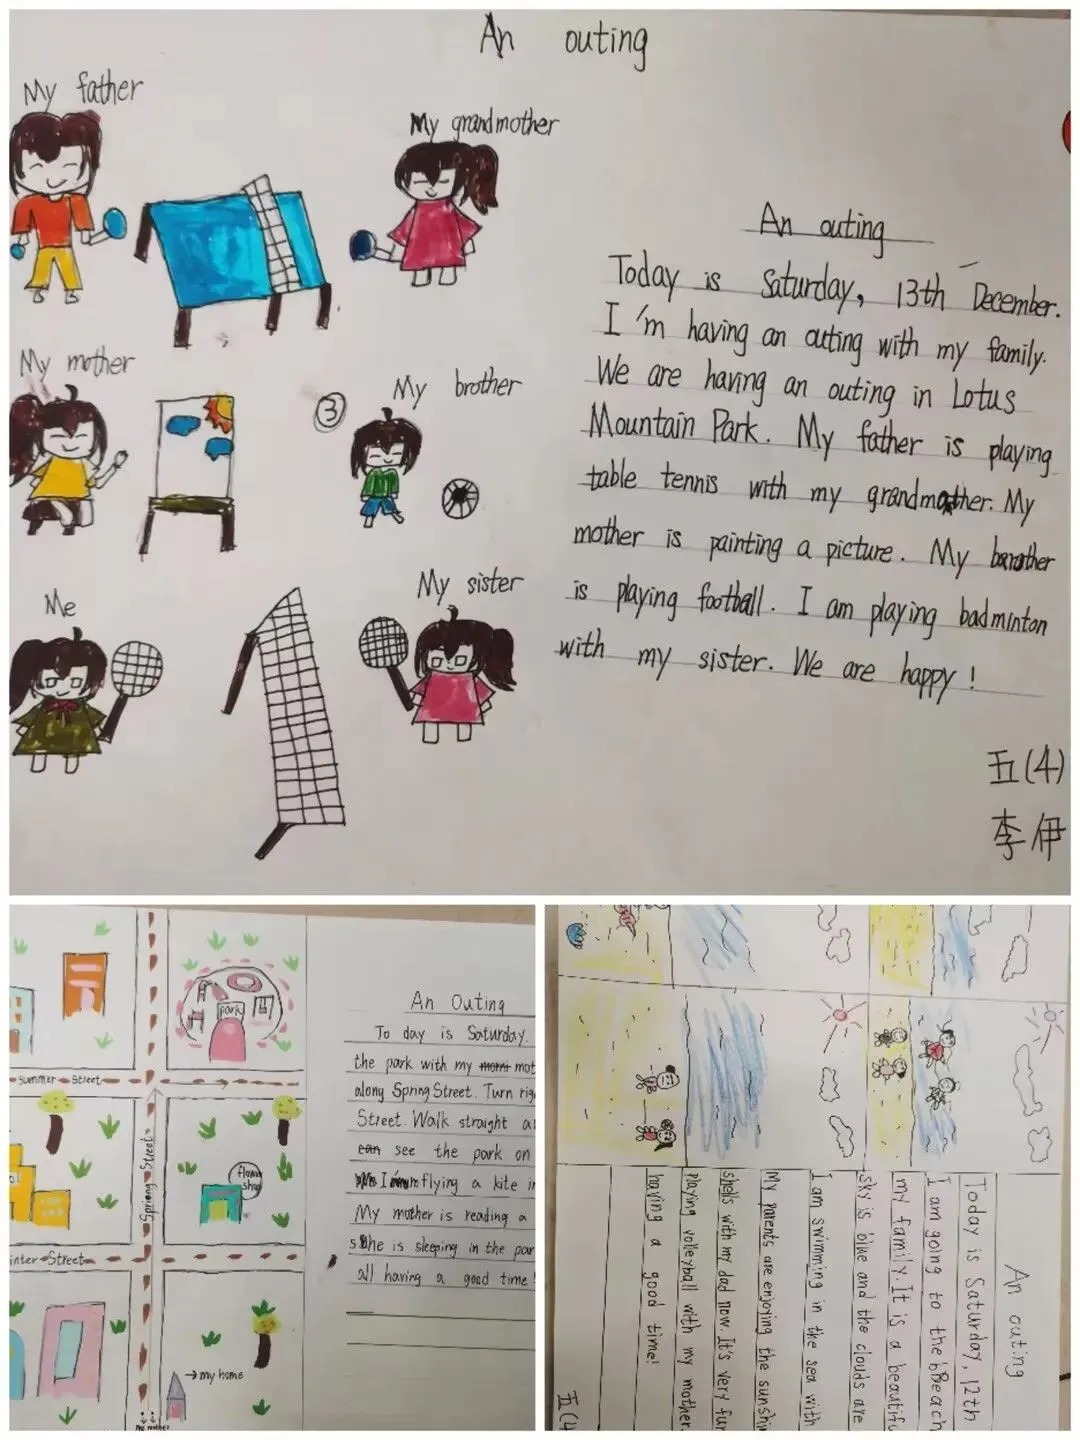 An outing
My father
My grandmother
My mother
③
My brother
Me
My sister
An outing
Today is Saturday, 13th December.
I'm having an outing with my family.
We are having an outing in Lotus
Mountain Park. My father is playing
table tennis with my grandmother. My
mother is painting a picture. My brother
is playing football. I am playing badminton
with my sister. We are happy!
五(4)
李伊
park
summer Street
Spring Street
flower shop
inter Street
→ my home
An Outing
To day is Saturday.
the park with my mot
along Spring Street. Turn rig
Street. Walk straight a
can see the park on
flying a kite i
My mother is reading a
she is sleeping in the par
all having a good time!
An outing
Today is Saturday, 12th
I am going to the Beach
my family. It is a beautifu
sky is blue and the clouds are
I am swimming in the sea with
My parents are enjoying the sunshi
shells with my dad now. It's very fun
playing volleyball with my mother.
having a good time!
五(4